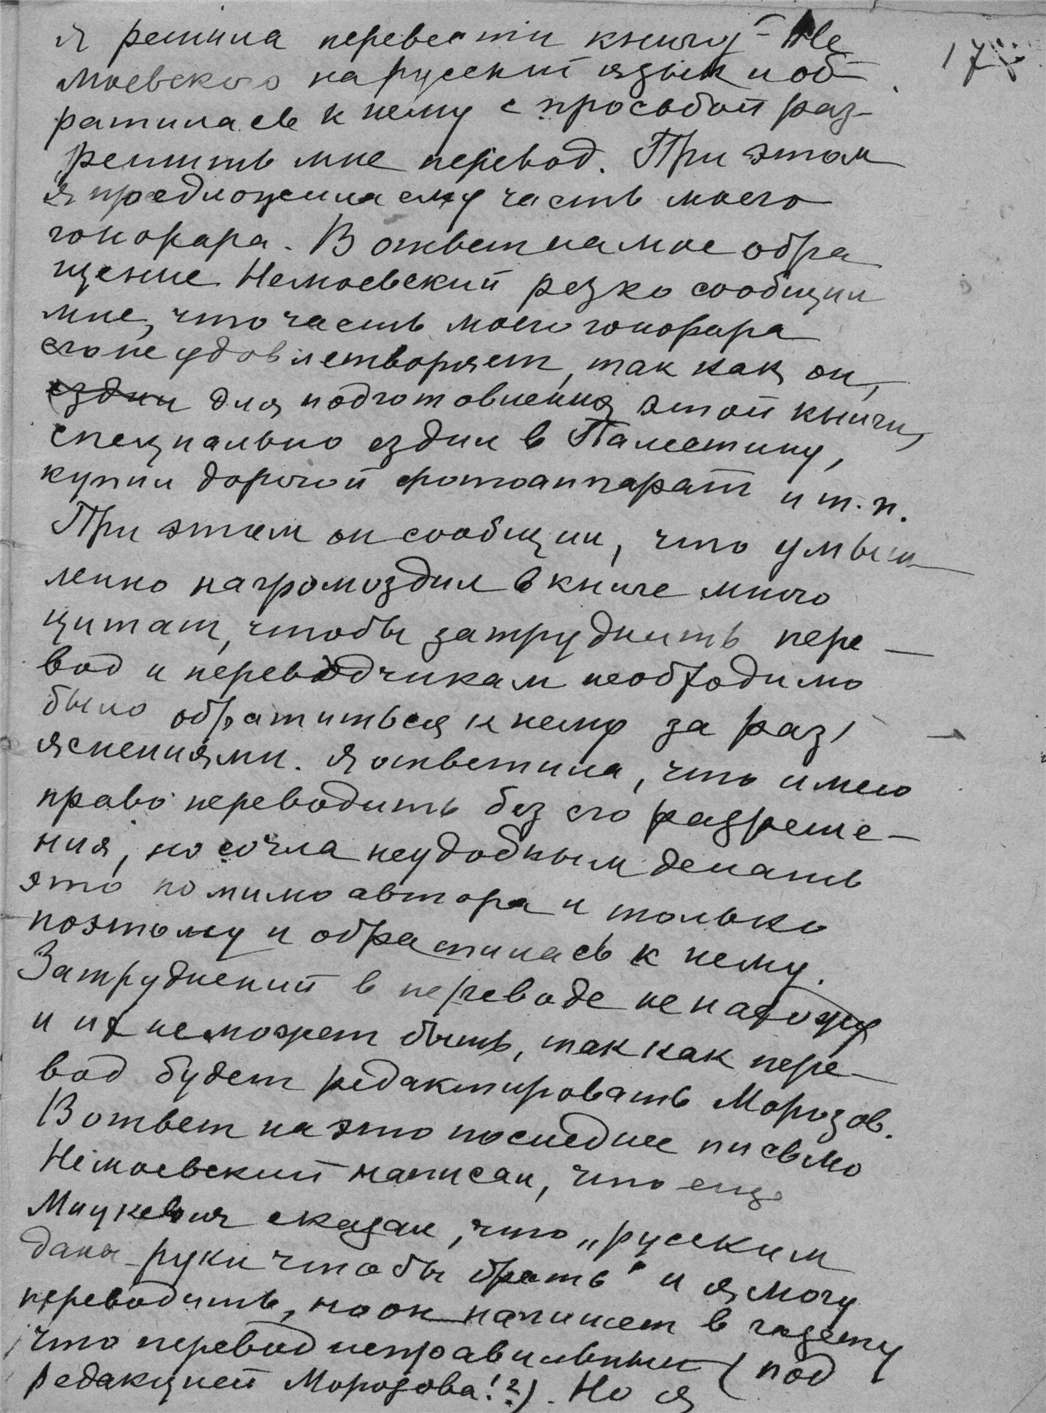 Я решила перевести книгу Не
моевского на русский язык и об
ратилась к нему с просьбой раз-
решить мне перевод. При этом
я предложила ему часть моего
гонорара. В ответ на мое обра
щение Немоевский резко сообщил
мне, что часть моего гонорара
его не удовлетворяет, так как он,
ездил для подготовления этой книги,
специально ездил в Палестину,
купил дорогой фотоаппарат и т.п.
При этом он сообщил, что умыш
ленно нагромоздил в книге много
цитат, чтобы затруднить пере-
вод и переводчикам необходимо
было обратиться к нему за раз'
яснениями. Я ответила, что имею
право переводить без его разреше-
ния, но сочла неудобным делать
это помимо автора и только
поэтому и обратилась к нему.
Затруднений в переводе не нахожу
и их не может быть, так как пере-
вод будет редактировать Морозов.
В ответ на это последнее письмо
Немоевский написал, что еще
Мицкевич сказал, что „русским
даны руки чтобы брать" и я могу
переводить, но он напишет в газету
что перевод неправильный (под
редакцией Морозова!?). Но я
177